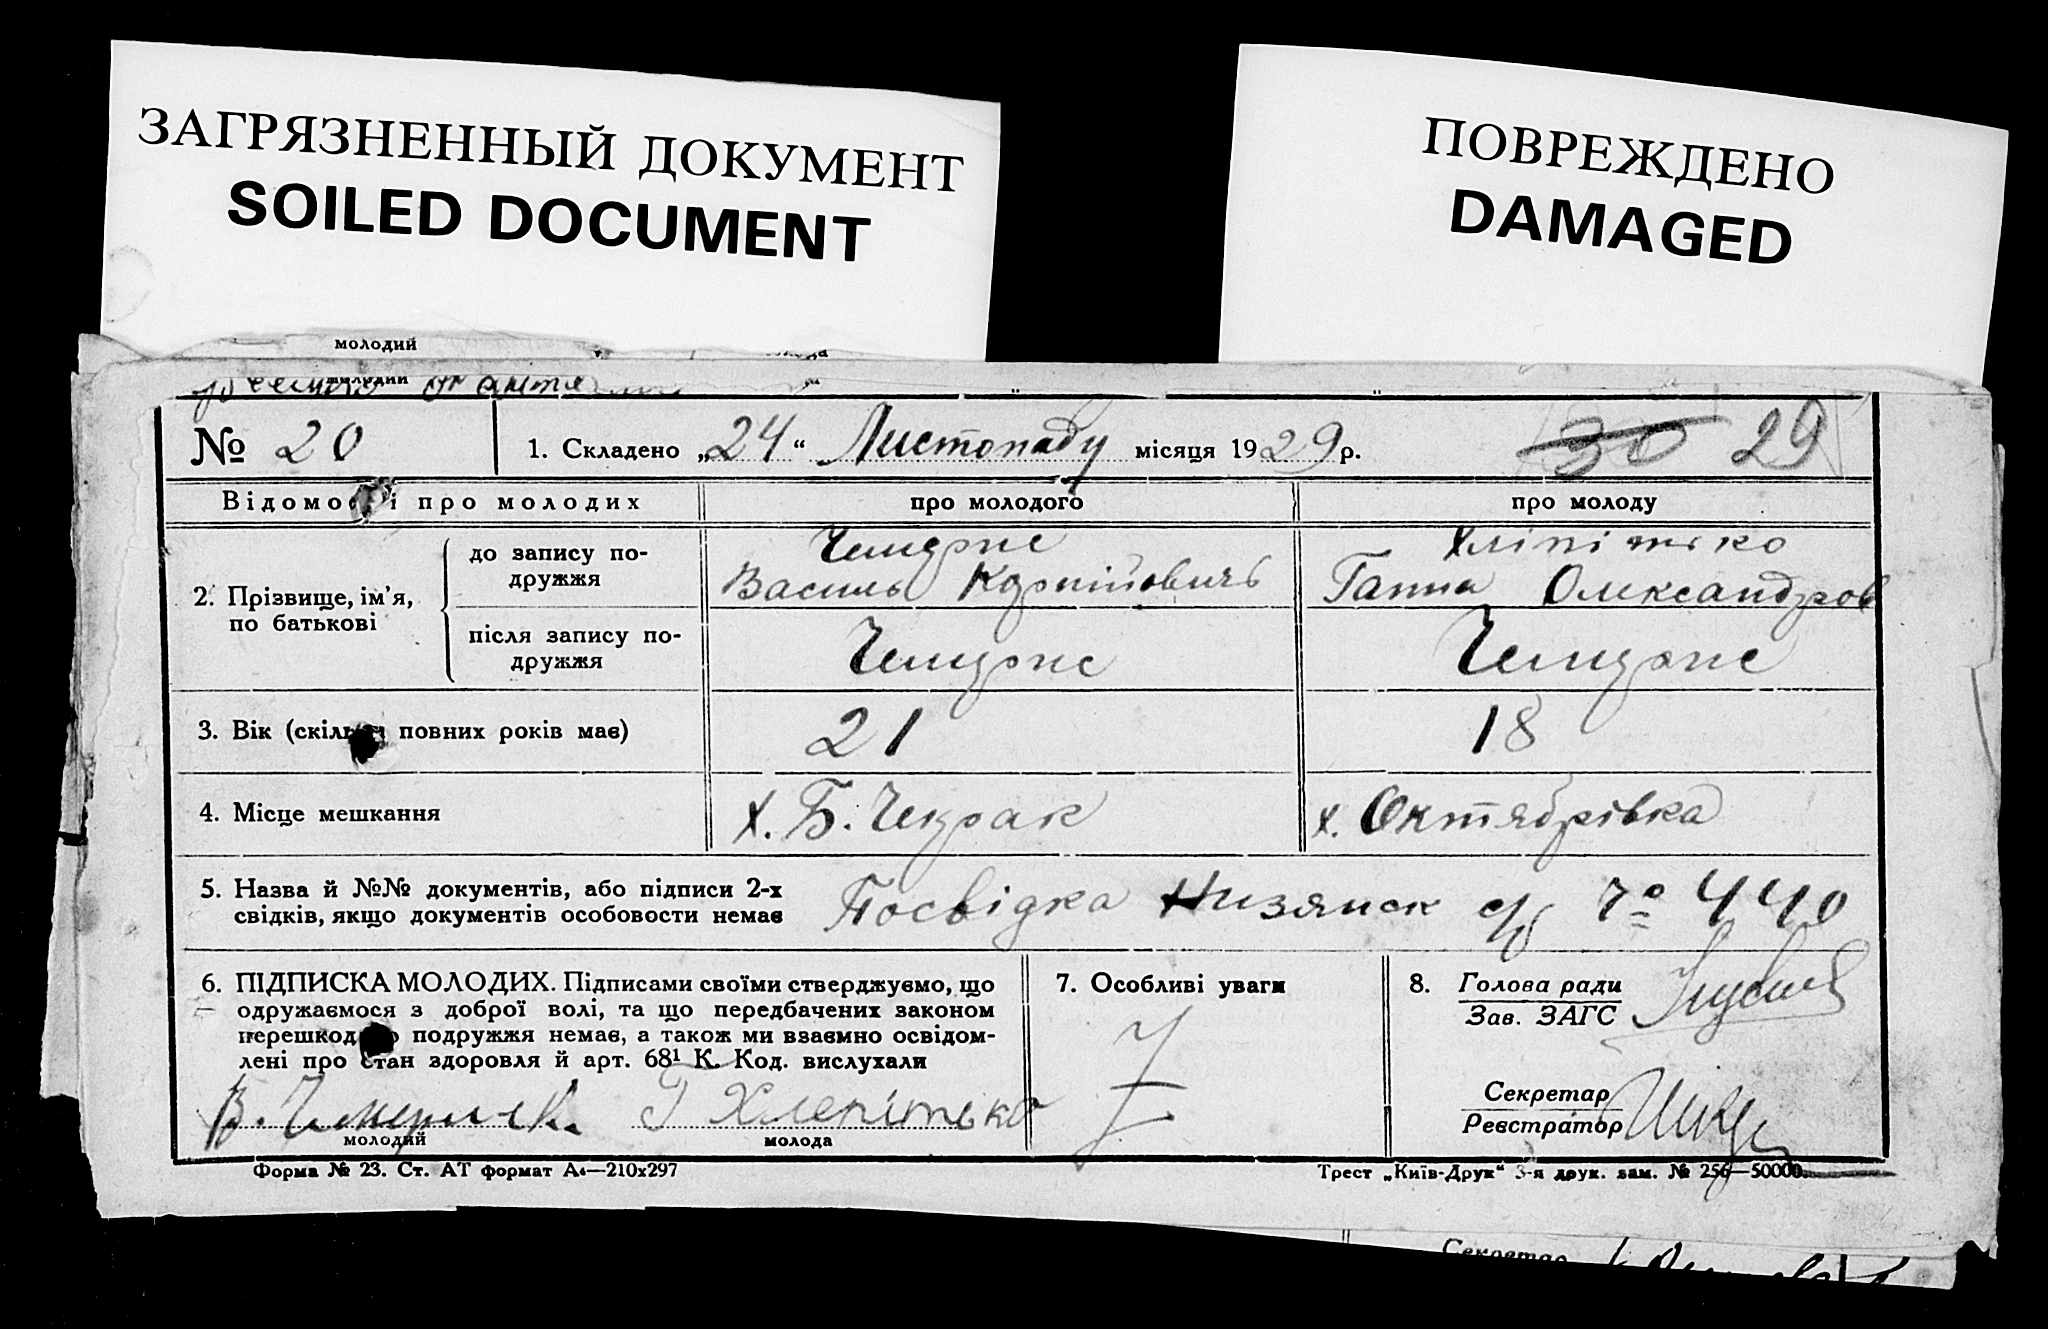 ЗАГРЯЗНЕННЫЙ ДОКУМЕНТ
SOILED DOCUMENT
ПОВРЕЖДЕНО
DAMAGED
молодий
молодий
№ 20
1. Складено „24“ Листопаду місяця 1929 р.
30 29
Відомості про молодих
про молодого
про молоду
2. Прізвище, ім’я,
по батькові
до запису по-
дружжя
Василь Карпійовичь
Ганна Олександров
після запису по-
дружжя
3. Вік (скільки повних років має)
21
18
4. Місце мешкання
х. Б. Чекрак
х. Октябрівка
5. Назва й №№ документів, або підписи 2-х
свідків, якщо документів особовости немає
Посвідка Низянск с/р № 440
6. ПІДПИСКА МОЛОДИХ. Підписами своїми стверджуємо, що
одружаємося з доброї волі, та що передбачених законом
перешкод до подружжя немає, а також ми взаємно освідом-
лені про стан здоровля й арт. 68¹ К. Код. вислухали
Г Хлепітько
молодий
молода
7. Особливі уваги
8. Голова ради
Зав. ЗАГС
Секретар
Реєстратор
Форма № 23. Ст. АТ формат А₄—210х297
Трест „Київ-Друк“ 3-я друк. зам. № 256—50000.
Секретар